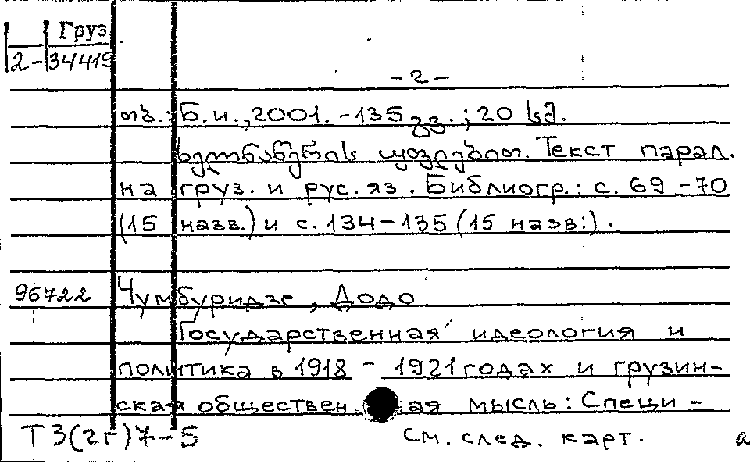 Груз
2-34419
-2-
თბ.: Б.и., 2001. -135 გვ.; 20 სმ.
ხელნაწერის უფლებით. Текст парал.
на груз. и рус. яз. Библиогр.: с. 69-70
(15 назв.) и с. 134-135 (15 назв.).
96722 Чумбуридзе, Додо
Государственная идеология и
политика в 1918 - 1921 годах и грузин-
ская обществен. ая мысль: Специ -
Т3(2Г)7-5 См. след. карт. а